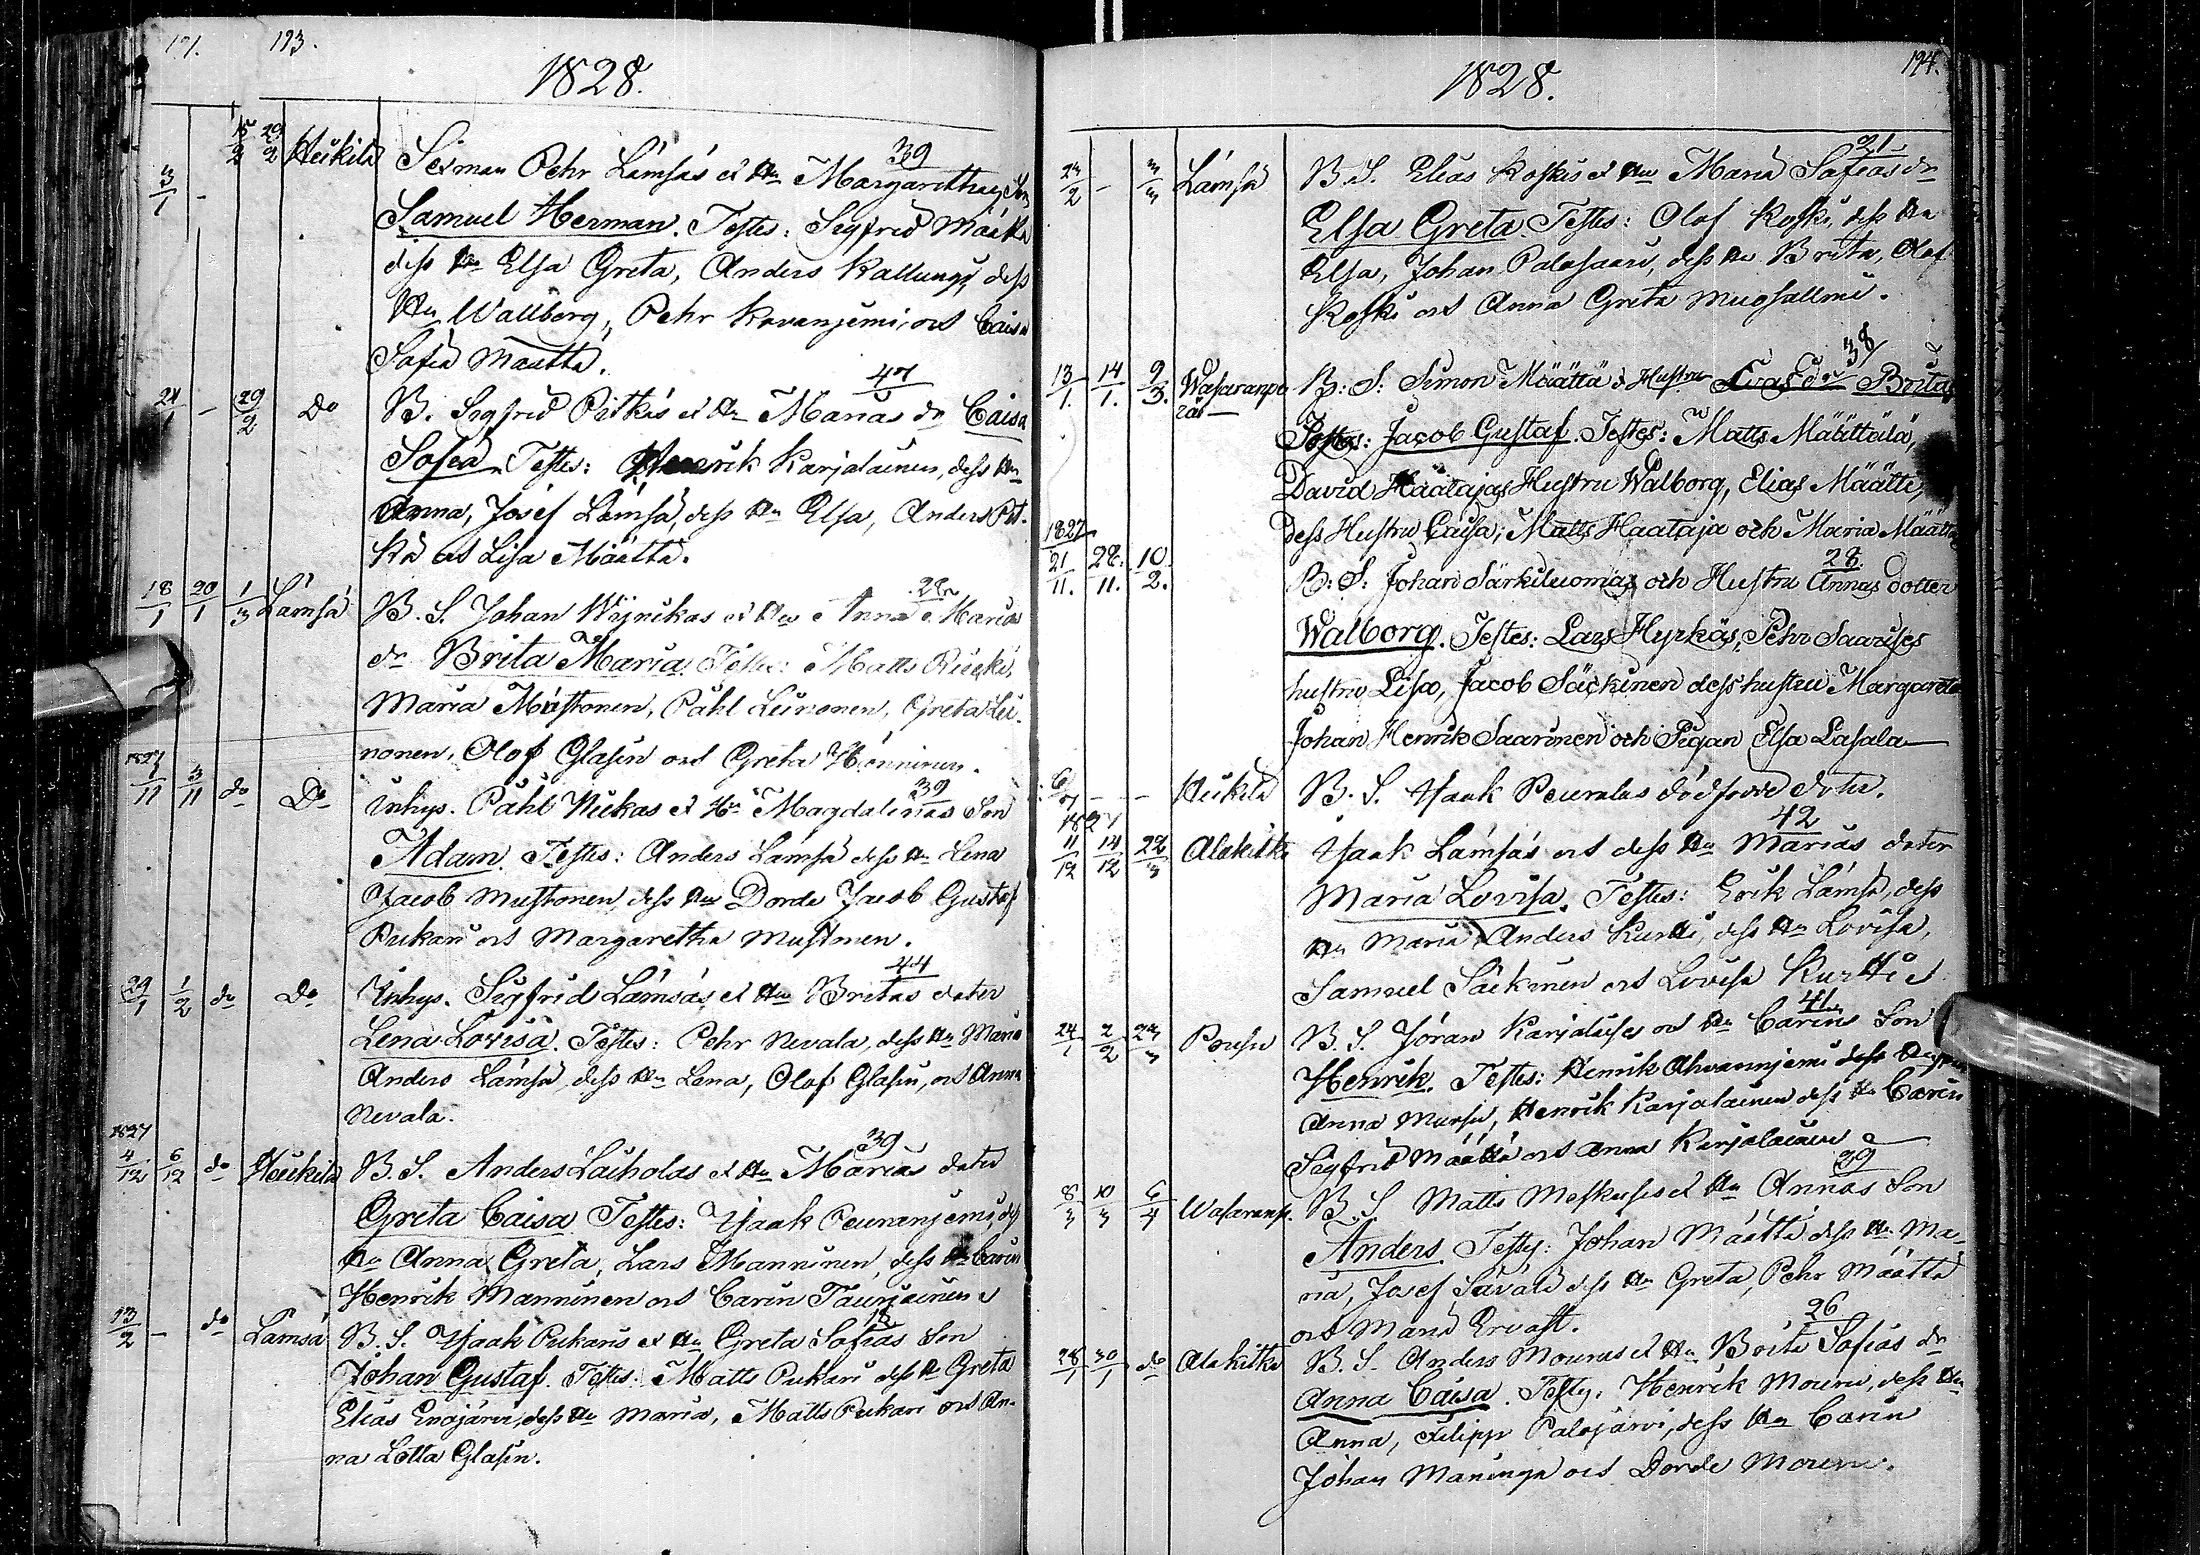 193.
1828.
15/2 29/2 Heikilä Sexman Pehr Lämsäs et Hu Margarethas Son 39
3/1 -
Samuel Herman. Testes: Sigfrid Määttä
dess Hu Elsa Greta, Anders Kallungi, dess
Hu Wallborg, Pehr Kovanjemi, och Caisa
Sofia Määttä.
24/1 - 29/2 Do B. Sigfrid Pitkäs et Hu Marias dr Caisa 47
Sofia. Testes: Henrik Karjalainen, dess Hu
Anna, Josef Lämsä, dess Hu Elsa, Anders Pit-
kä och Lisa Määttä.
18/1 20/1 1/3 Lämsä B. S. Johan Wijnikas et Hu Anna Marias 28
dr Brita Maria. Testes: Matts Riieki,
Maria Mustonen, Påhl Leinonen, Greta Lei-
nonen, Olof Glasin och Greta Hänninen.
1827
1/11 3/11 do Do Inhys. Påhl Niekas et Hu Magdalenas Son 39
Adam. Testes: Anders Lämsä dess Hu Lena
Jacob Mustonen, dess Hu Dorde Jacob Gustaf
Pukari och Margaretha Mustonen.
29/1 1/2 do Do Inhys. Sigfrid Lämsäs et Hu Britas doter 44
Lena Lovisa. Testes: Pehr Nevala, dess Hu Maria
Anders Lämsä, dess Hu Lena, Olof Glasin, och Anna
Nevala.
1827
4/12 6/12 do Heikilä B. S. Anders Laiholas et Hu Marias doter 39
Greta Caisa Testes: Isaak Peuranjemi, dess
Hu Anna Greta, Lars Manninen, dess Hu Carin
Henrik Manninen och Carin Taurjainen
13/2 - do Lämsä B. S. Isaak Pukaris et Hu Greta Sofias Son
Johan Gustaf. Testes: Matts Pukari dess Hu Greta
Elias Enojärvi, dess Hu Maria, Matts Pukari och An-
na Lotta Glasin.
1828.
194.
23/2 - 3/3 Lämsä B. S. Elias Koskis et Hu Maria Sofias dr 21
Elsa Greta. Testes: Olof Koski, dess Hu
Elsa, Johan Palosaari, dess Hu Brita, Olof
Koski och Anna Greta Mugsallmi.
13/1. 14/1. 9/3. Wasaranpe B: S: Simon Määttä & Hustru Brita 38
rä Jacob Gustaf. Testes: Matts Määttälä,
David Häätajas Hustru Walborg, Elias Määttä,
dess Hustru Caisa; Matts Haataja och Maria Määttä
1827
21/11. 28./11. 10/2. B: S: Johan Särkiluomas och Hustru Annas dotter 28
Walborg. Testes: Lars Hyrkäs, Pehr Saarises
hustru Lisa, Jacob Säckinen dess hustru Margareta
Johan Henrik Saarinen och Pigan Elsa Lasala
6/7 - - Heikilä B. S. Isaak Peuralas dödfödde doter.
1827
11/12 14/12 22/3 Alakitka Isaak Lämsäs och dess Hu Marias doter 42
Maria Lovisa. Testes: Erik Lämsä, dess
Hu Maria, Anders Kurtti, dess Hu Lovisa,
Samuel Säckinen och Lovisa Kurtti
24/1 2/2 23/3 Pousu B. S. Jöran Karjaluses och Hu Carins Son 41
Henrik. Testes: Henrik Ahvennjemi dess
Anna Mursu, Henrik Karjalainen dess Hu Carin
Sigfrid Määttä och Anna Karjalainen
8/3 10/3 6/4 Wasaranp. B. S. Matts Meskuses et Hu Annas Son 29
Anders. Testes: Johan Määttä dess Hu Ma-
ria, Josef Säväld dess Hu Greta, Pehr Määttä
och Maria Ervast.
28/1 30/1 do Alakitka B. S. Anders Mourus et Hu Brita Sofias dr 26
Anna Caisa. Testes. Henrik Mouru, dess Hu
Anna, Filipp Palojärvi, dess Hu Carin
Johan Maninga och Dorde Mouru.